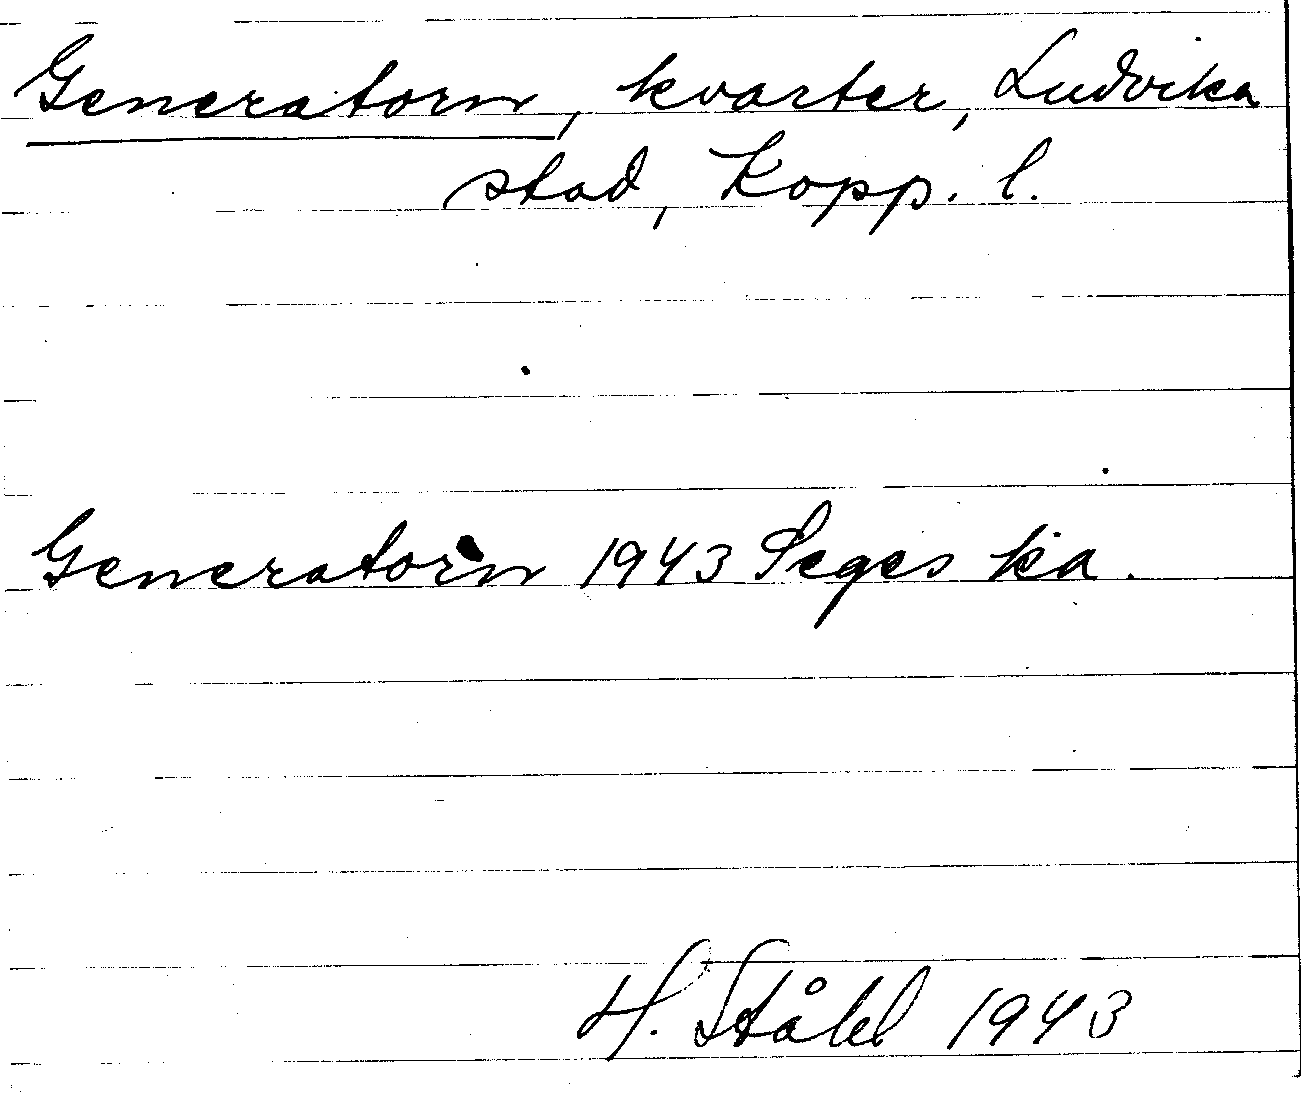 Generatorn, kvarter, Ludvika
stad, Kopp. l.
Generatorn 1943 Seges ka.
H. Ståhl 1943